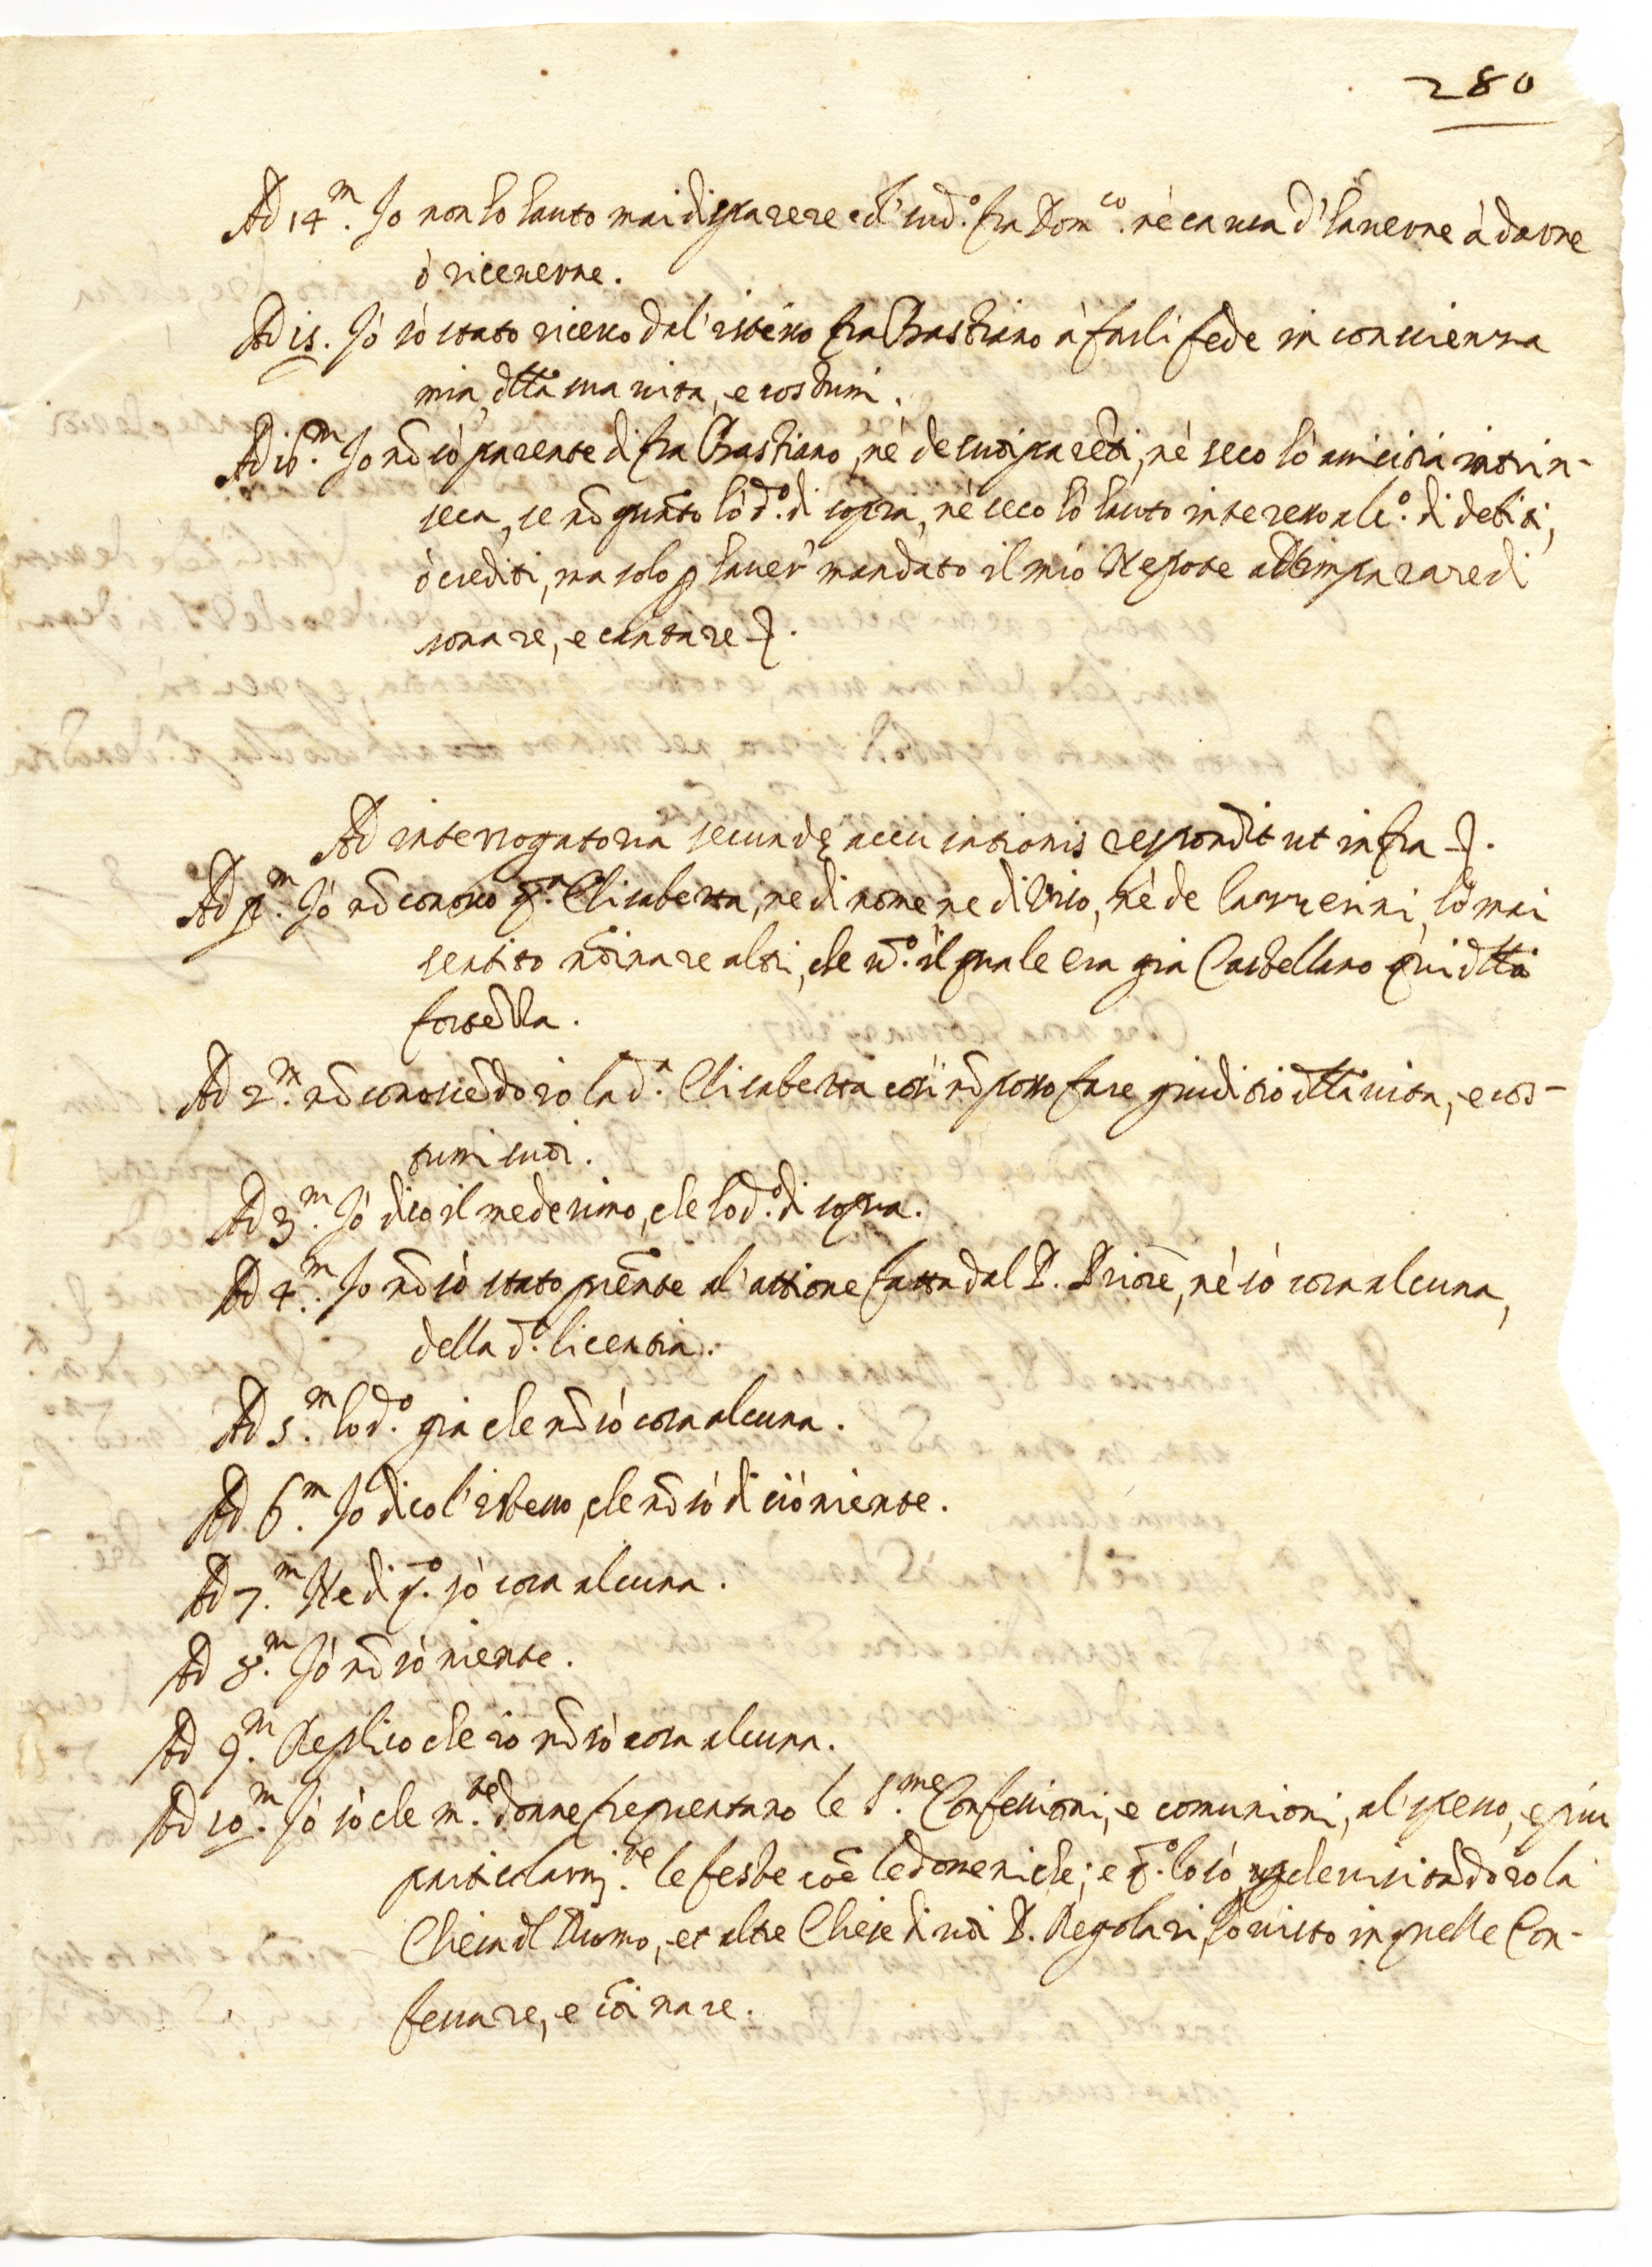 280
Ad 14.m Io non hò hauto mai disparere col' sud.o fra Dom.co nè causa d'hauerne à darne
ò riceuerne.
Ad 15. Iò sò stato ricerco dal' istesso fra Bastiano à farli fede in conscienza
mia dlla sua uita, e costumi.
Ad 16.m Io nō sò parente di fra Bastiano, nè de suoi parēti, nè seco hò amicitia intrin-
seca, se nō quāto hò d.o di sopra, nè seco hò hauto interesso alc.o di debiti,
ò crediti, ma solo p hauer mandato il mio Nepote ad imparare di
sonare, e cantare
Ad interrogatoria secundę accusationis respondit ut infra
Ad p.m Iò nō conosco q.a Elisabetta, ne di nome ne di uiso, nè de hò mai
sentito nōinare altri, che u.o il quale era gia Castellano qui dlla
fortezza.
Ad 2.m nō conoscēdo io la d.a Elisabetta così nō posso fare giuditio dlla uita, e cos-
tumi suoi.
Ad 3.m Iò dico il medesimo, che hò d.o di sopra.
Ad 4.m Io nō sò stato prēnte al' attione fatta dal P. Priore, nè sò cosa alcuna,
della d.a licentia.
Ad 5.m hò d.o gia che nō sò cosa alcuna.
Ad 6.m Io dico l'istesso, che nō sò di ciò niente.
Ad 7.m Ne di q.o sò cosa alcuna.
Ad 8.m Iò nō sò niente.
Ad 9.m Replico che io nō sò cosa alcuna.
Ad 10.m Iò sò che m.te donne frequentano le S.me Confessioni, e comunioni, al' spesso, e più
particolarm.te le feste cōe le domeniche; e q.o lo sò che uisitādo io la
Chiesa dl Duomo, et altre Chiese di uoi P. Regolari, hò uisto in quelle Con-
fessare, e cōinare.